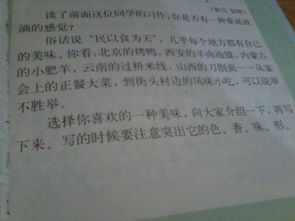 读了前面这位同学的习作，你是否有一种垂涎欲
滴的感觉？
俗话说“民以食为天”，几乎每个地方都有自己
的美味。你看：北京的烤鸭，西安的羊肉泡馍，内蒙古
的小肥羊，云南的过桥米线，山西的刀削面……从宴
会上的正餐大菜，到街头村边的风味小吃，可以说举
不胜举。
选择你喜欢的一种美味，向大家介绍一下，再写
下来。写的时候要注意突出它的色、香、味、形。